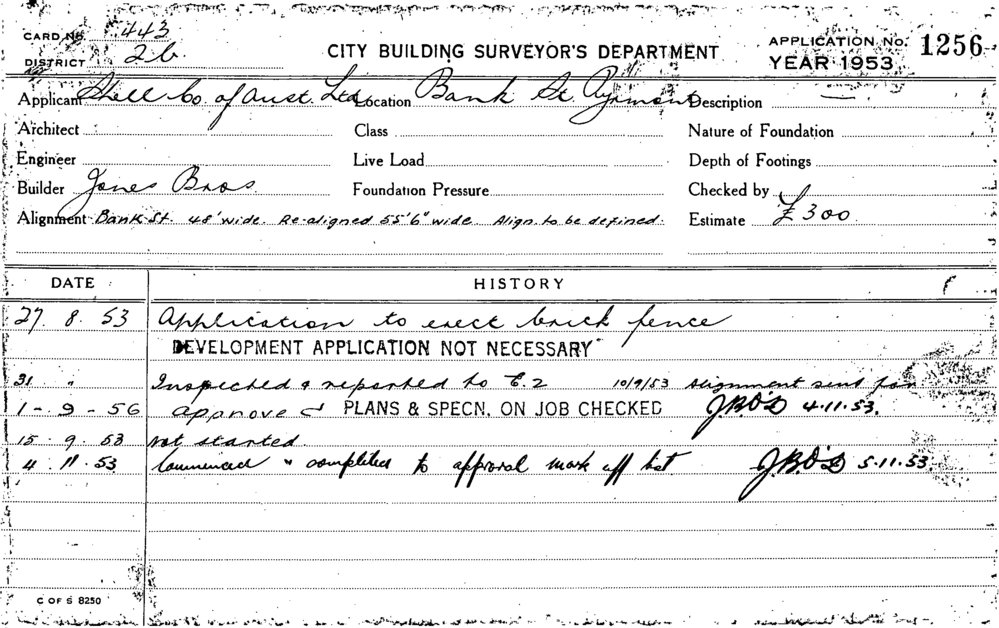 CARD No. 443
DISTRICT 2b
CITY BUILDING SURVEYOR'S DEPARTMENT
APPLICATION No. 1256
YEAR 1953
Applicant Shell Co of Aust. Ltd Location Bank St. Pyrmont Description —
Architect Class Nature of Foundation
Engineer Live Load Depth of Footings
Builder Jones Bros. Foundation Pressure Checked by
Alignment Bank St. 48' wide. Re-aligned 55'6" wide. Align. to be defined. Estimate £300
DATE HISTORY
27. 8. 53 Application to erect brick fence
DEVELOPMENT APPLICATION NOT NECESSARY
31 " Inspected & reported to E.2 10/9/53 alignment sent for
1-9-56 approved PLANS & SPECN. ON JOB CHECKED JBO'D 4.11.53.
15. 9. 53 not started
4. 11. 53 Commenced & completed to approval mark off list JBO'D 5.11.53.
C OF S 8250